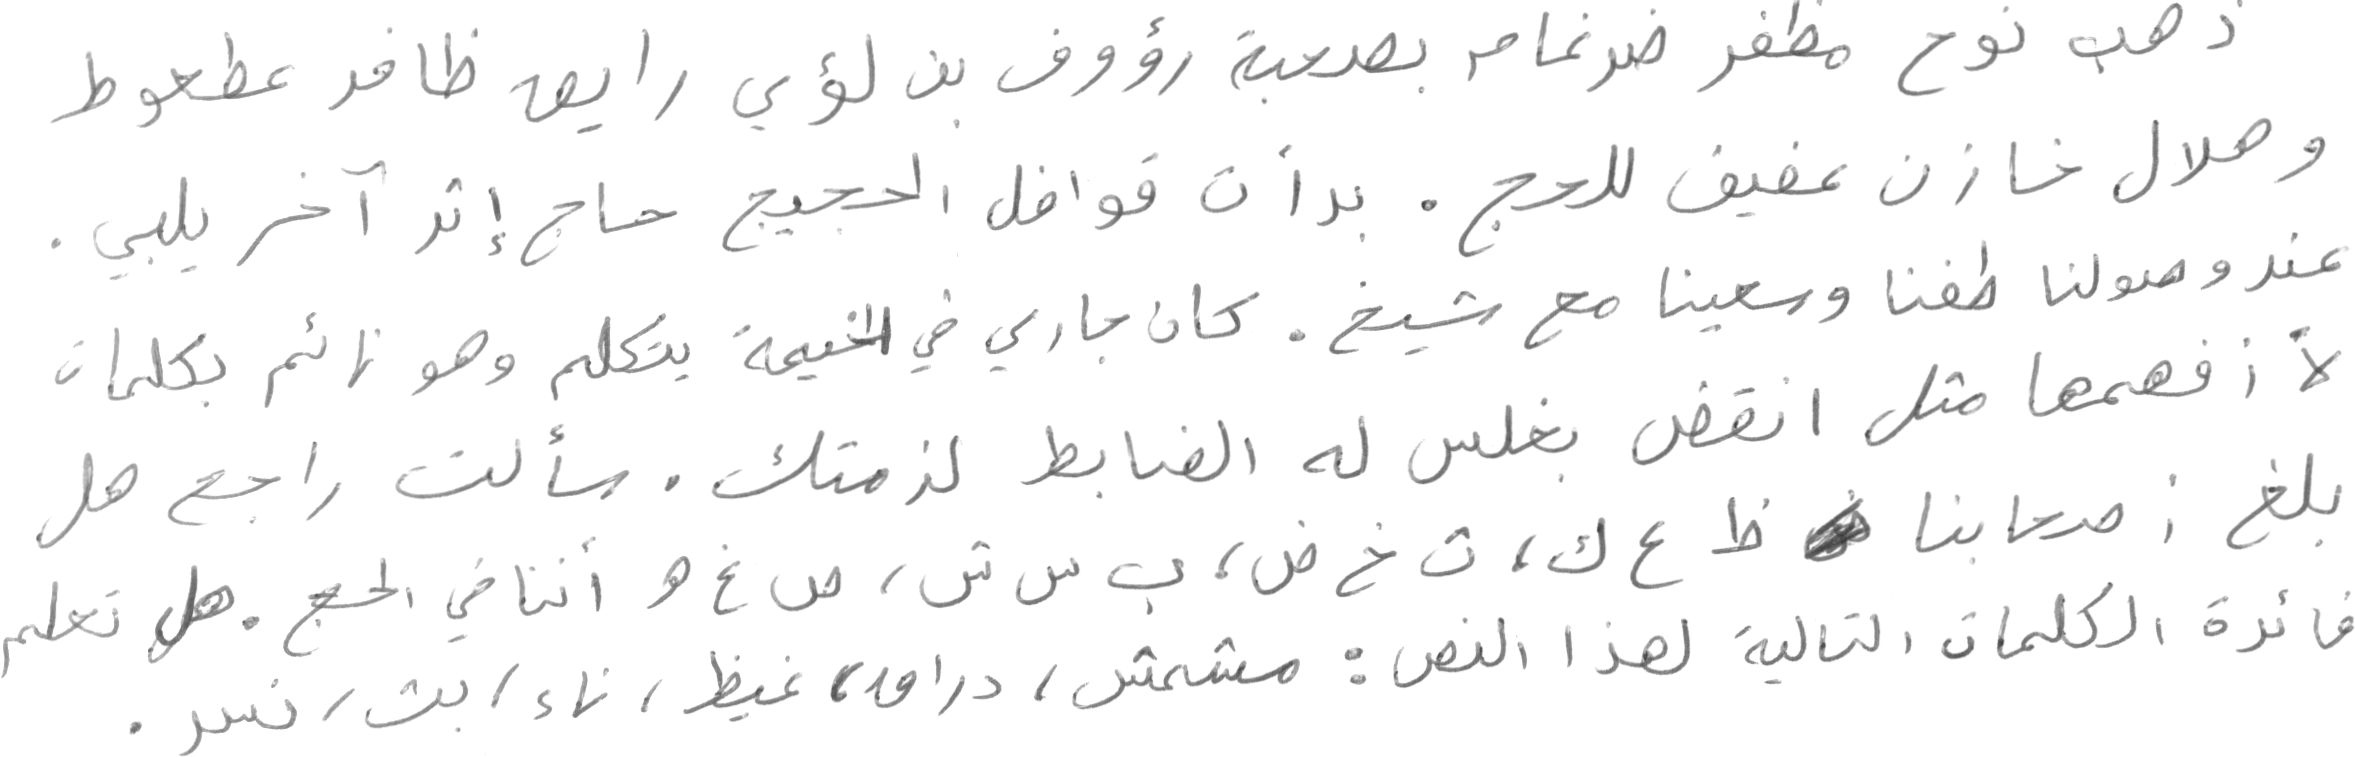 ذهب نوح مظفر ضرغام بصحبة رؤوف بن لؤي رايق ظافر عطعوط
وهلال خازن عفيف للحج . بدأت قوافل الحجيج حاج إثر آخر يلبي .
عند وصولنا طفنا وسعينا مع شيخ . كان جاري في الخيمة يتكلم وهو نائم بكلمات
لا أفهمها مثل انقض بغلس له الضابط لذمتك . سألت راجح هل
بلغ أصحابنا ظ ع ك ، ث خ ض ، ب س ش ، ص غ ه أننا في الحج . هل تعلم
فائدة الكلمات التالية لهذا النص : مشمش ، دراق ، غيظ ، ناء ، بث ، نسر .